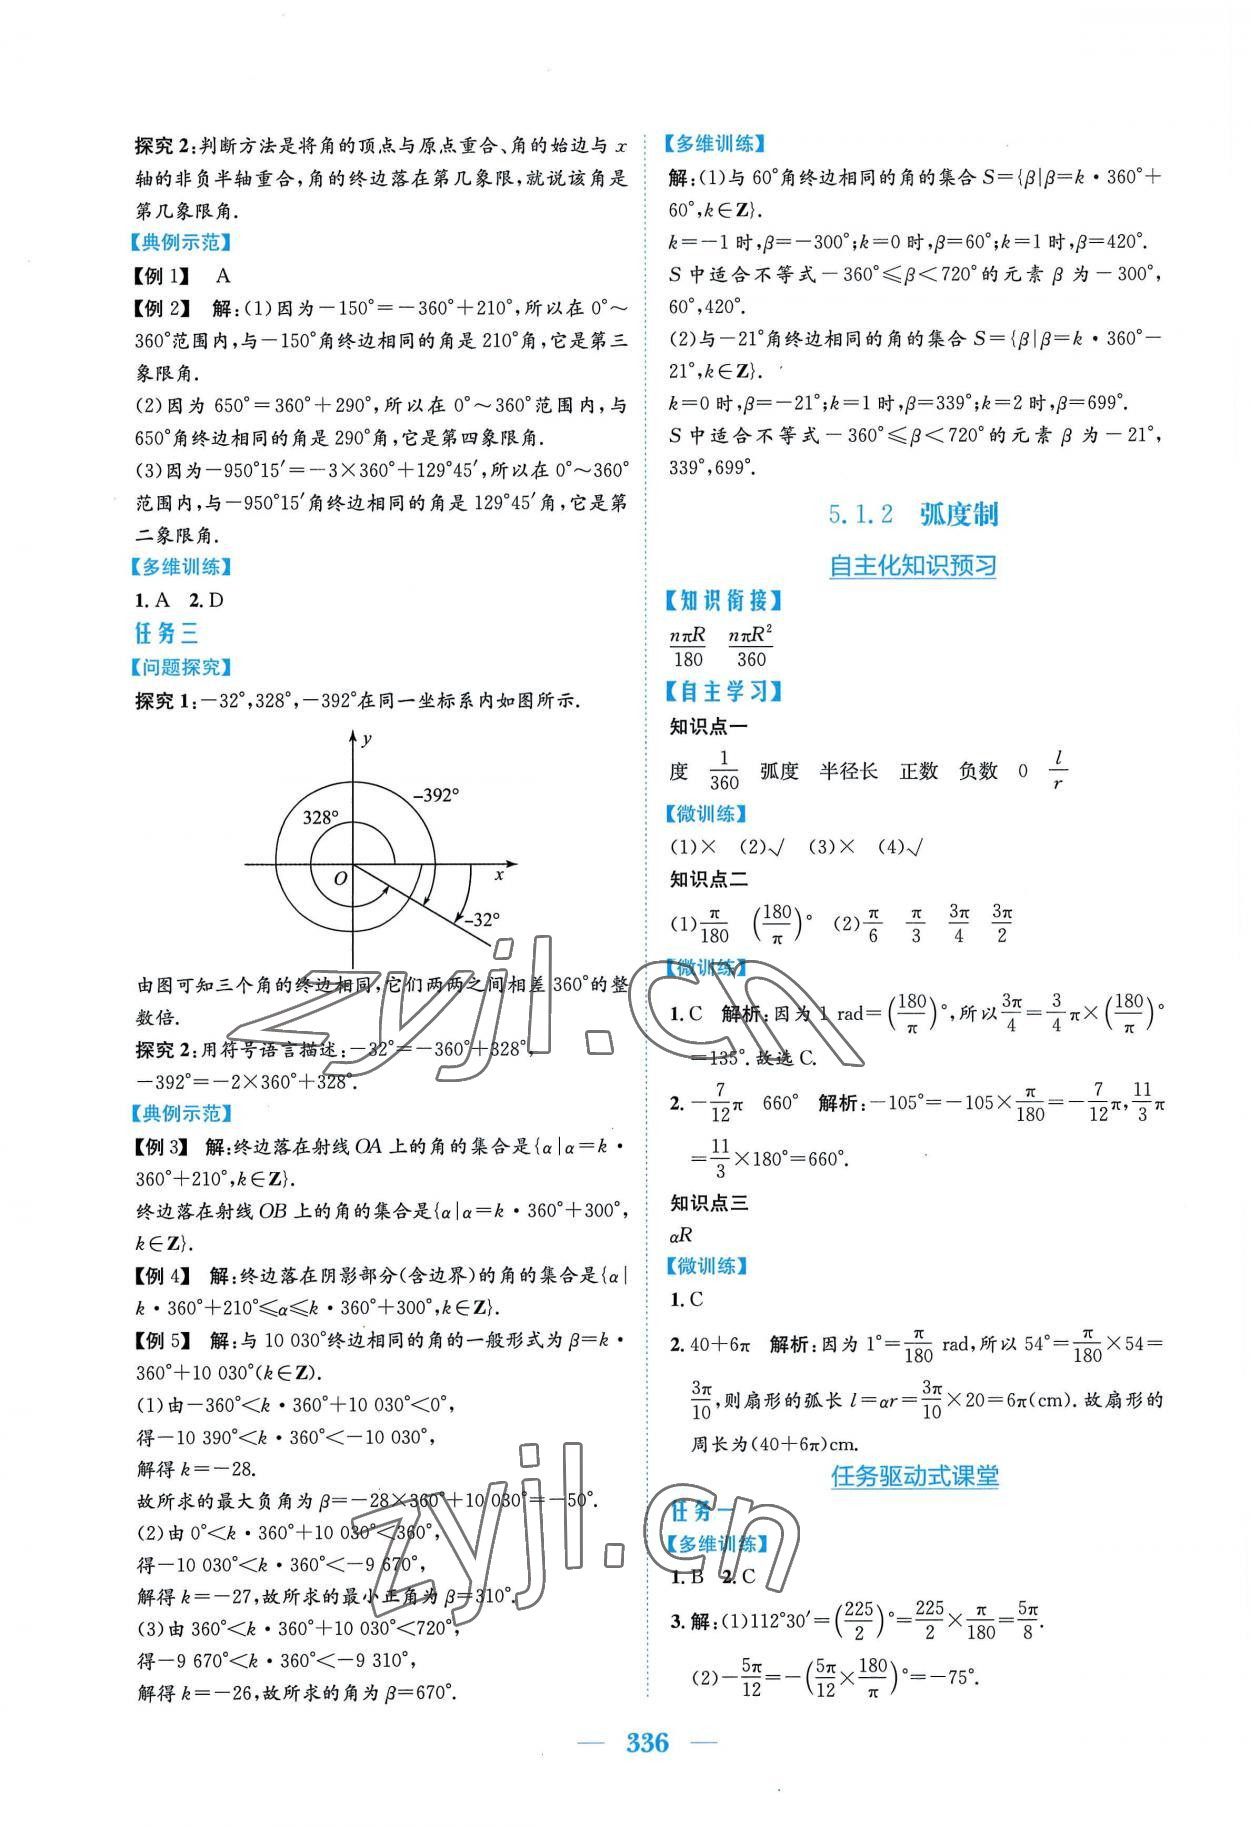 探究2:判断方法是将角的顶点与原点重合、角的始边与 x
轴的非负半轴重合,角的终边落在第几象限,就说该角是
第几象限角.
【典例示范】
【例1】 A
【例2】 解:(1)因为-150°=-360°+210°,所以在0°~
360°范围内,与-150°角终边相同的角是210°角,它是第三
象限角.
(2)因为 650°=360°+290°,所以在 0°~360°范围内,与
650°角终边相同的角是290°角,它是第四象限角.
(3)因为-950°15′=-3×360°+129°45′,所以在0°~360°
范围内,与-950°15′角终边相同的角是129°45′角,它是第
二象限角.
【多维训练】
1.A 2.D
任务三
【问题探究】
探究1:-32°,328°,-392°在同一坐标系内如图所示.
y
-392°
328°
O
x
-32°
由图可知三个角的终边相同,它们两两之间相差360°的整
数倍.
探究2:用符号语言描述:-32°=-360°+328°,
-392°=-2×360°+328°.
【典例示范】
【例3】 解:终边落在射线OA上的角的集合是{α|α=k·
360°+210°,k∈Z}.
终边落在射线OB上的角的集合是{α|α=k·360°+300°,
k∈Z}.
【例4】 解:终边落在阴影部分(含边界)的角的集合是{α|
k·360°+210°≤α≤k·360°+300°,k∈Z}.
【例5】 解:与10 030°终边相同的角的一般形式为β=k·
360°+10 030°(k∈Z).
(1)由-360°<k·360°+10 030°<0°,
得-10 390°<k·360°<-10 030°,
解得k=-28.
故所求的最大负角为β=-28×360°+10 030°=-50°.
(2)由0°<k·360°+10 030°<360°,
得-10 030°<k·360°<-9 670°,
解得k=-27,故所求的最小正角为β=310°.
(3)由360°<k·360°+10 030°<720°,
得-9 670°<k·360°<-9 310°,
解得k=-26,故所求的角为β=670°.
【多维训练】
解:(1)与60°角终边相同的角的集合S={β|β=k·360°+
60°,k∈Z}.
k=-1时,β=-300°;k=0时,β=60°;k=1时,β=420°.
S中适合不等式-360°≤β<720°的元素β为-300°,
60°,420°.
(2)与-21°角终边相同的角的集合S={β|β=k·360°-
21°,k∈Z}.
k=0时,β=-21°;k=1时,β=339°;k=2时,β=699°.
S中适合不等式-360°≤β<720°的元素β为-21°,
339°,699°.
5.1.2 弧度制
自主化知识预习
【知识衔接】
nπR/180 nπR²/360
【自主学习】
知识点一
度 1/360 弧度 半径长 正数 负数 0 l/r
【微训练】
(1)× (2)√ (3)× (4)√
知识点二
(1)π/180 (180/π)° (2)π/6 π/3 3π/4 3π/2
【微训练】
1.C 解析:因为1 rad=(180/π)°,所以3π/4=3/4π×(180/π)°
=135°.故选C.
2.-7/12π 660° 解析:-105°=-105×π/180=-7/12π,11/3π
=11/3×180°=660°.
知识点三
αR
【微训练】
1.C
2.40+6π 解析:因为1°=π/180 rad,所以54°=π/180×54=
3π/10,则扇形的弧长l=αr=3π/10×20=6π(cm).故扇形的
周长为(40+6π)cm.
任务驱动式课堂
任务一
【多维训练】
1.B 2.C
3.解:(1)112°30′=(225/2)°=225/2×π/180=5π/8.
(2)-5π/12=-(5π/12×180/π)°=-75°.
— 336 —
zyjl.cn
zyjl.cn